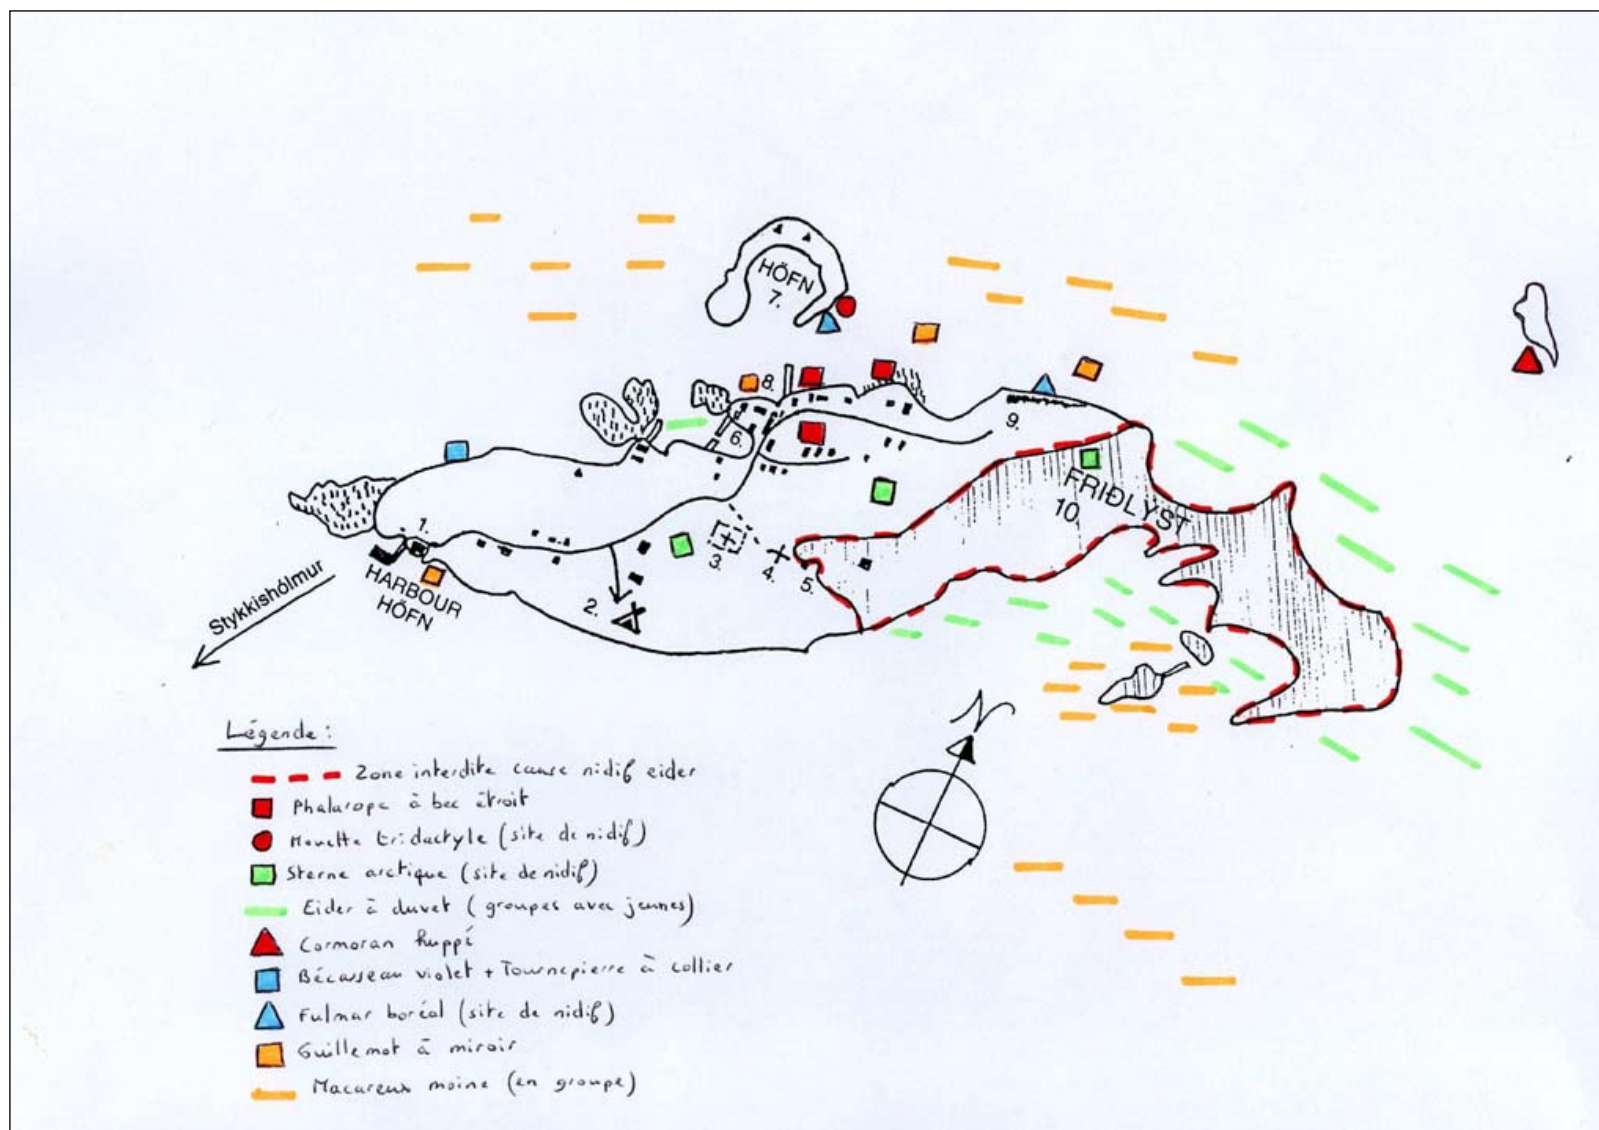 HÖFN
7.
8.
6.
9.
FRIÐLYST
10.
1.
HARBOUR
HÖFN
3.
4.
5.
2.
Stykkishólmur
N
Légende :
Zone interdite cause nidif eider
Phalarope à bec étroit
Mouette tridactyle (site de nidif)
Sterne arctique (site de nidif)
Eider à duvet (groupes avec jeunes)
Cormoran huppé
Bécasseau violet + Tournepierre à collier
Fulmar boréal (site de nidif)
Guillemot à miroir
Macareux moine (en groupe)